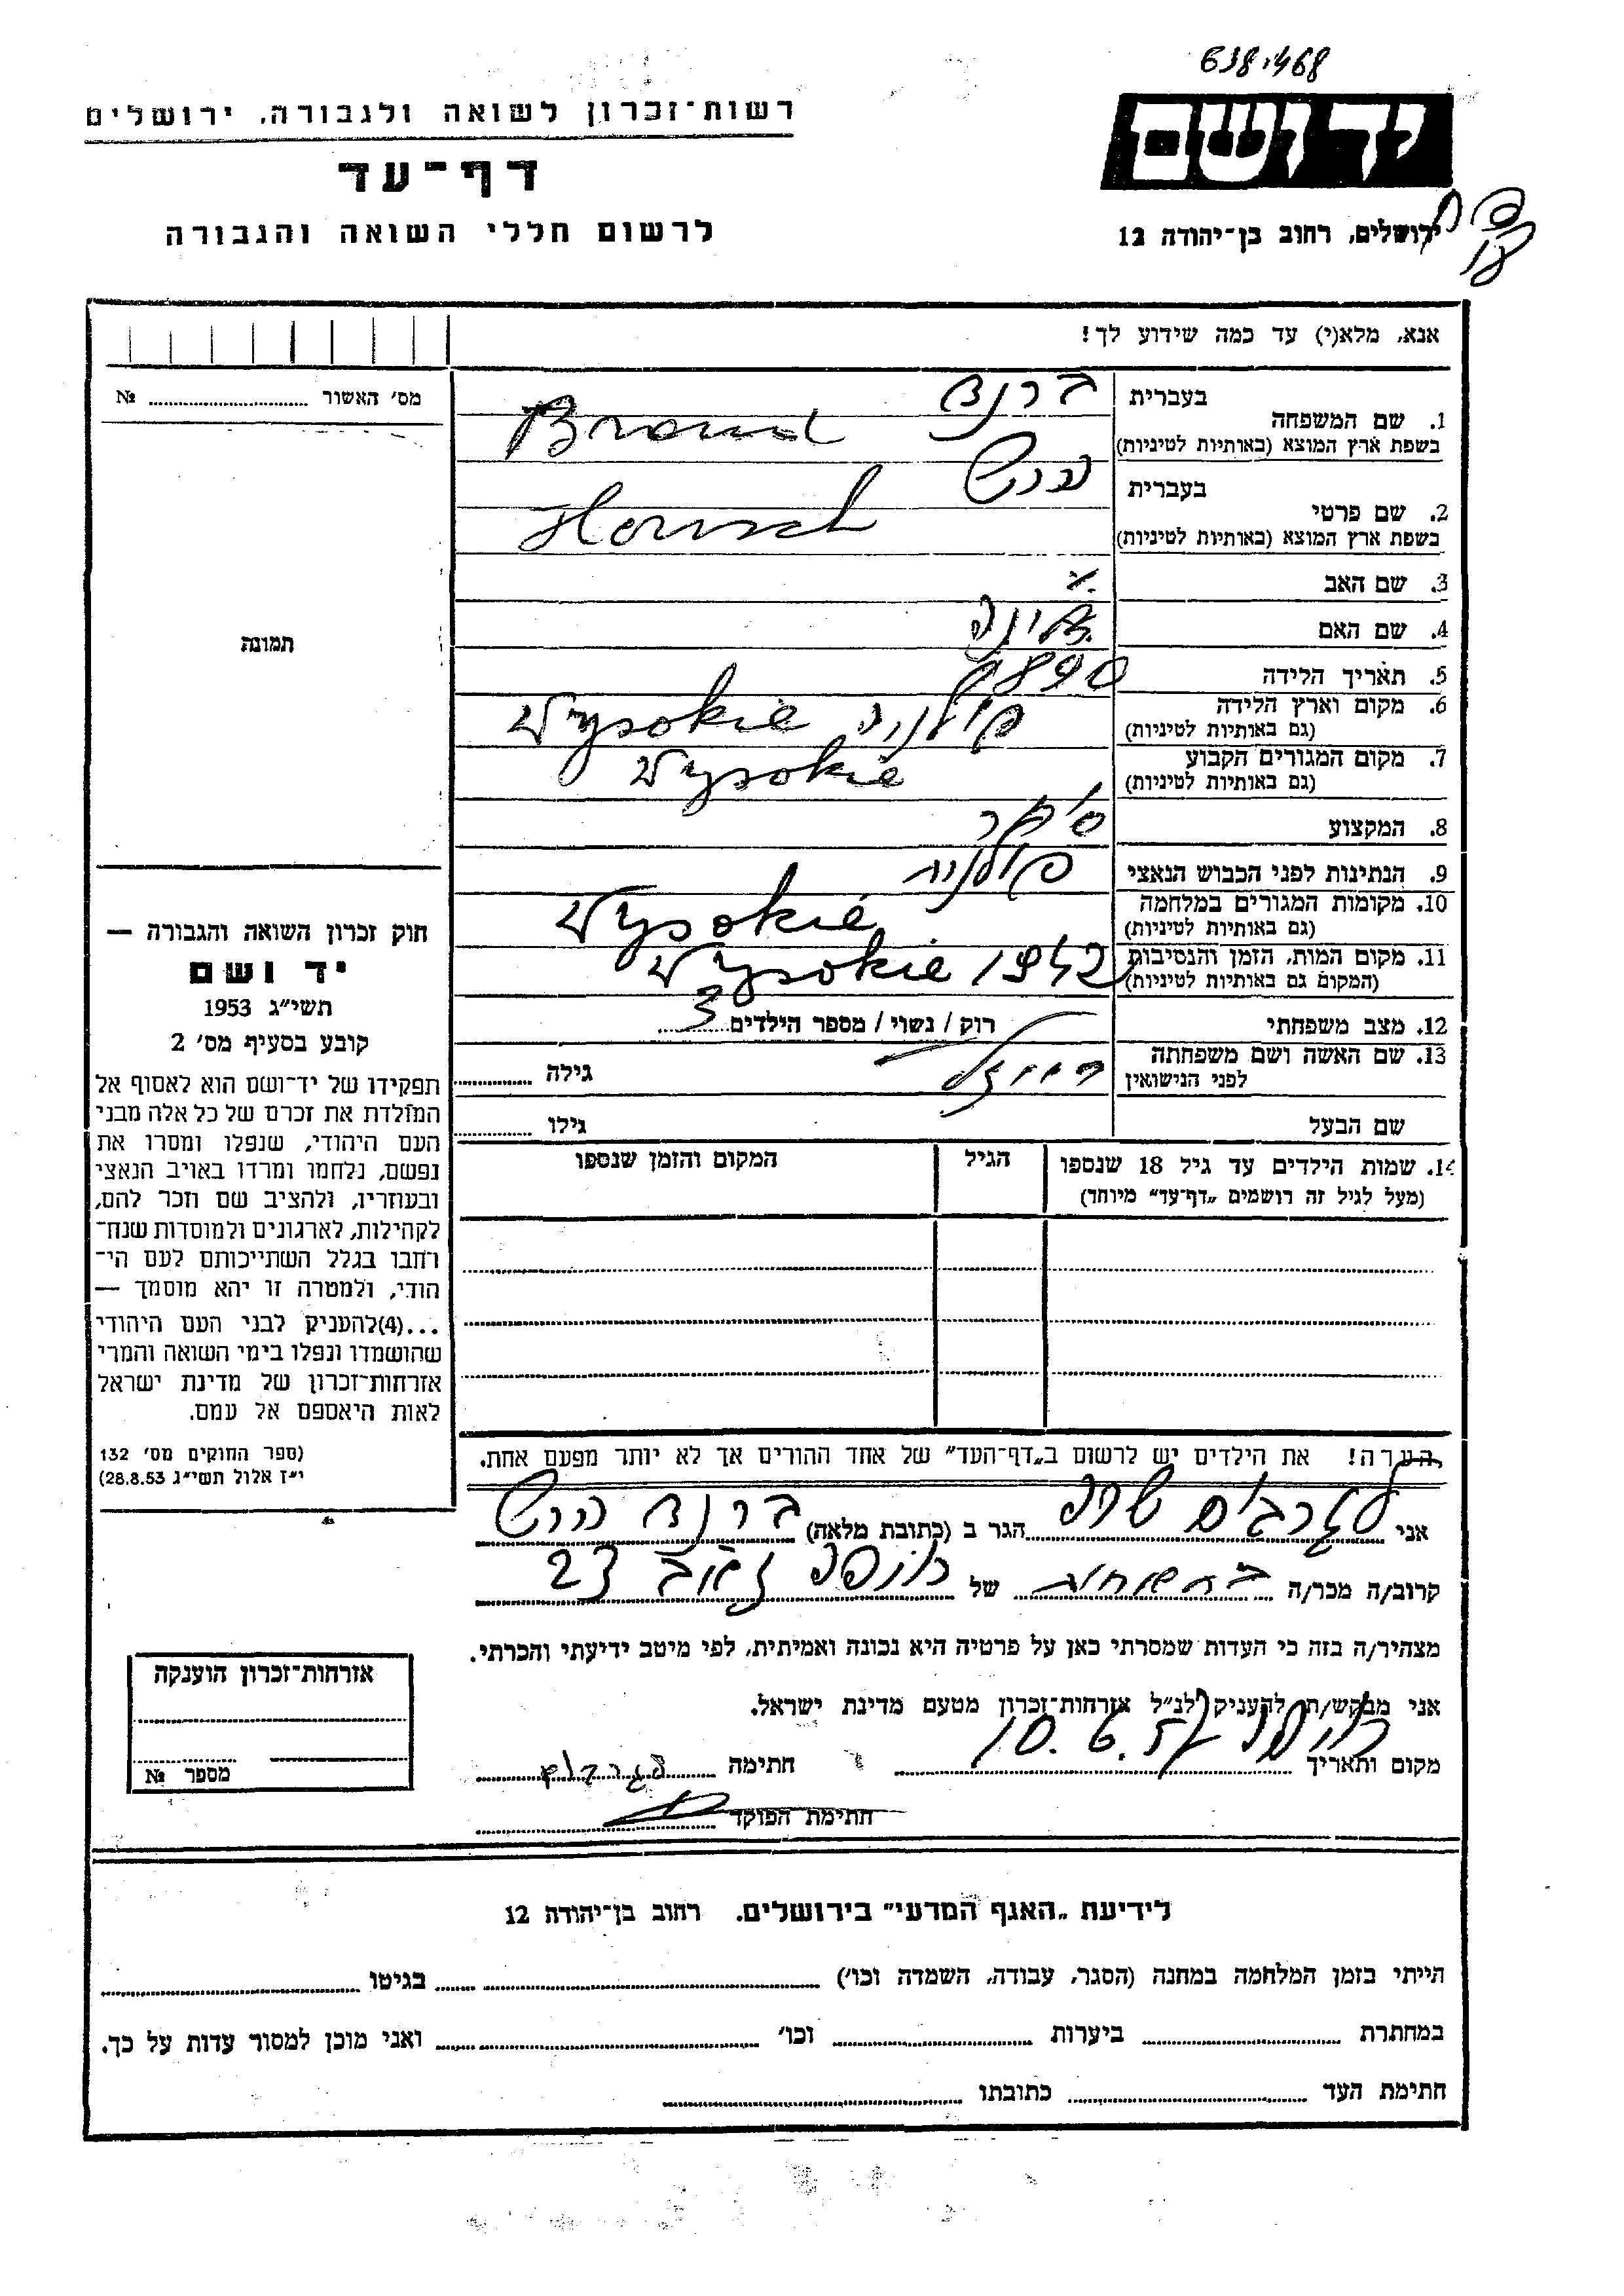 638.468
רשות-זכרון לשואה ולגבורה, ירושלים
ידושם
דף-עד
לרשום חללי השואה והגבורה
ירושלים, רחוב בן-יהודה 12
אנא, מלא(י) עד כמה שידוע לך!
מס' האשור № 
תמונה
1. שם המשפחה בעברית ברנד
בשפת ארץ המוצא (באותיות לטיניות) Brand
2. שם פרטי בעברית הרש
בשפת ארץ המוצא (באותיות לטיניות)
3. שם האב
4. שם האם
5. תאריך הלידה 1890
6. מקום וארץ הלידה (גם באותיות לטיניות) פולניה Wysokie
7. מקום המגורים הקבוע (גם באותיות לטיניות) Wysokie
8. המקצוע סוחר
9. הנתינות לפני הכבוש הנאצי פולנית
10. מקומות המגורים במלחמה (גם באותיות לטיניות) Wysokie
11. מקום המות, הזמן והנסיבות (המקום גם באותיות לטיניות) Wysokie 1942
12. מצב משפחתי רוק / נשוי / מספר הילדים 3
13. שם האשה ושם משפחתה לפני הנישואין גילה
שם הבעל גילו
14. שמות הילדים עד גיל 18 שנספו הגיל המקום והזמן שנספו
(מעל לגיל זה רושמים „דף-עד" מיוחד)
הערה! את הילדים יש לרשום ב„דף-העד" של אחד ההורים אך לא יותר מפעם אחת.
חוק זכרון השואה והגבורה —
יד ושם
תשי"ג 1953
קובע בסעיף מס' 2
תפקידו של יד-ושם הוא לאסוף אל
המולדת את זכרם של כל אלה מבני
העם היהודי, שנפלו ומסרו את
נפשם, נלחמו ומרדו באויב הנאצי
ובעוזריו, ולהציב שם וזכר להם,
לקהילות, לארגונים ולמוסדות שנח-
רחבו בגלל השתייכותם לעם הי-
הודי, ולמטרה זו יהא מוסמך —
...(4)להעניק לבני העם היהודי
שהושמדו ונפלו בימי השואה והמרי
אזרחות-זכרון של מדינת ישראל
לאות היאספם אל עמם.
(ספר החוקים מס' 132
י"ז אלול תשי"ג 28.8.53)
אני הגר ב (כתובת מלאה) ברנד הרש
קרוב/ה מכר/ה של 23
מצהיר/ה בזה כי העדות שמסרתי כאן על פרטיה היא נכונה ואמיתית, לפי מיטב ידיעתי והכרתי.
אני מבקש/ת להעניק לנ"ל אזרחות-זכרון מטעם מדינת ישראל.
מקום ותאריך 10.6.57 חתימה
חתימת הפוקד
אזרחות-זכרון הוענקה
מספר №
לידיעת „האגף המדעי" בירושלים. רחוב בן-יהודה 12
הייתי בזמן המלחמה במחנה (הסגר, עבודה, השמדה וכו') בגיטו
במחתרת ביערות וכו' ואני מוכן למסור עדות על כך.
חתימת העד כתובתו